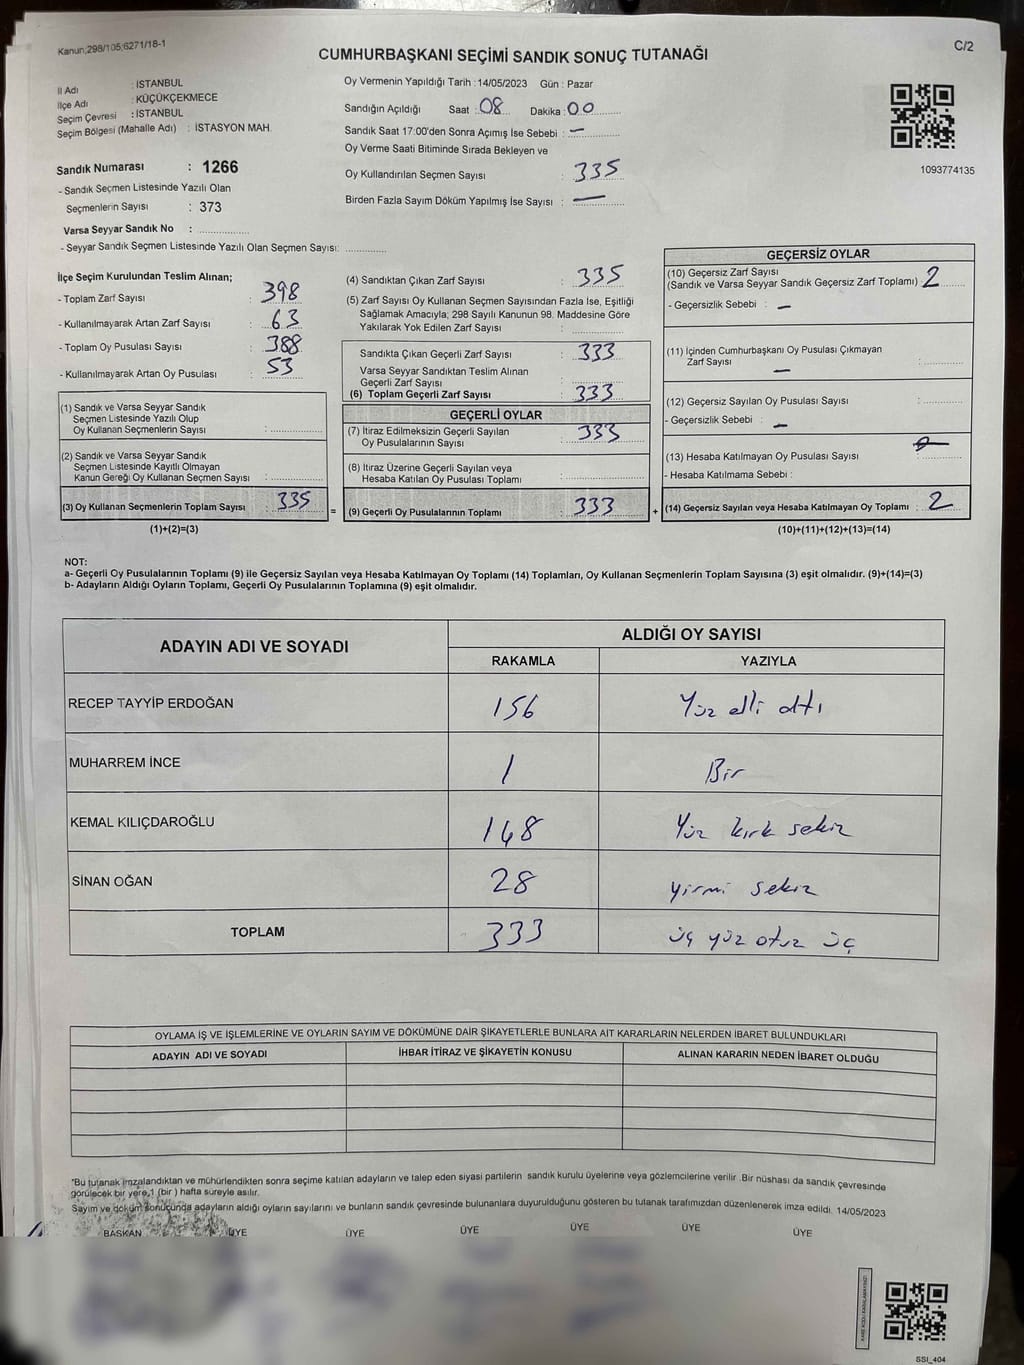 Kanun;298/105;6271/18-1
C/2
CUMHURBAŞKANI SEÇİMİ SANDIK SONUÇ TUTANAĞI
İl Adı : İSTANBUL
İlçe Adı : KÜÇÜKÇEKMECE
Seçim Çevresi : İSTANBUL
Seçim Bölgesi (Mahalle Adı) : İSTASYON MAH.
Sandık Numarası : 1266
- Sandık Seçmen Listesinde Yazılı Olan
Seçmenlerin Sayısı : 373
Varsa Seyyar Sandık No : ..............
- Seyyar Sandık Seçmen Listesinde Yazılı Olan Seçmen Sayısı: ..............
Oy Vermenin Yapıldığı Tarih : 14/05/2023 Gün : Pazar
Sandığın Açıldığı Saat : 08 Dakika : 00
Sandık Saat 17:00'den Sonra Açımış İse Sebebi : —
Oy Verme Saati Bitiminde Sırada Bekleyen ve
Oy Kullandırılan Seçmen Sayısı : 335
Birden Fazla Sayım Döküm Yapılmış İse Sayısı : —
1093774135
İlçe Seçim Kurulundan Teslim Alınan;
- Toplam Zarf Sayısı : 398
- Kullanılmayarak Artan Zarf Sayısı : 63
- Toplam Oy Pusulası Sayısı : 388
- Kullanılmayarak Artan Oy Pusulası : 53
(1) Sandık ve Varsa Seyyar Sandık
Seçmen Listesinde Yazılı Olup
Oy Kullanan Seçmenlerin Sayısı : ..............
(2) Sandık ve Varsa Seyyar Sandık
Seçmen Listesinde Kayıtlı Olmayan
Kanun Gereği Oy Kullanan Seçmen Sayısı : ..............
(3) Oy Kullanan Seçmenlerin Toplam Sayısı : 335
(1)+(2)=(3)
=
(4) Sandıktan Çıkan Zarf Sayısı : 335
(5) Zarf Sayısı Oy Kullanan Seçmen Sayısından Fazla İse, Eşitliği
Sağlamak Amacıyla; 298 Sayılı Kanunun 98. Maddesine Göre
Yakılarak Yok Edilen Zarf Sayısı : ..............
Sandıkta Çıkan Geçerli Zarf Sayısı : 333
Varsa Seyyar Sandıktan Teslim Alınan
Geçerli Zarf Sayısı : ..............
(6) Toplam Geçerli Zarf Sayısı : 333
GEÇERLİ OYLAR
(7) İtiraz Edilmeksizin Geçerli Sayılan
Oy Pusulalarının Sayısı : 333
(8) İtiraz Üzerine Geçerli Sayılan veya
Hesaba Katılan Oy Pusulası Toplamı : ..............
(9) Geçerli Oy Pusulalarının Toplamı : 333
+
GEÇERSİZ OYLAR
(10) Geçersiz Zarf Sayısı
(Sandık ve Varsa Seyyar Sandık Geçersiz Zarf Toplamı) : 2
- Geçersizlik Sebebi : —
(11) İçinden Cumhurbaşkanı Oy Pusulası Çıkmayan
Zarf Sayısı : ..............
—
(12) Geçersiz Sayılan Oy Pusulası Sayısı : ..............
- Geçersizlik Sebebi : —
(13) Hesaba Katılmayan Oy Pusulası Sayısı : ..............
- Hesaba Katılmama Sebebi :
(14) Geçersiz Sayılan veya Hesaba Katılmayan Oy Toplamı : 2
(10)+(11)+(12)+(13)=(14)
NOT:
a- Geçerli Oy Pusulalarının Toplamı (9) ile Geçersiz Sayılan veya Hesaba Katılmayan Oy Toplamı (14) Toplamları, Oy Kullanan Seçmenlerin Toplam Sayısına (3) eşit olmalıdır. (9)+(14)=(3)
b- Adayların Aldığı Oyların Toplamı, Geçerli Oy Pusulalarının Toplamına (9) eşit olmalıdır.
ADAYIN ADI VE SOYADI
ALDIĞI OY SAYISI
RAKAMLA YAZIYLA
RECEP TAYYİP ERDOĞAN 156 Yüz elli altı
MUHARREM İNCE 1 Bir
KEMAL KILIÇDAROĞLU 148 Yüz kırk sekiz
SİNAN OĞAN 28 yirmi sekiz
TOPLAM 333 üç yüz otuz üç
OYLAMA İŞ VE İŞLEMLERİNE VE OYLARIN SAYIM VE DÖKÜMÜNE DAİR ŞİKAYETLERLE BUNLARA AİT KARARLARIN NELERDEN İBARET BULUNDUKLARI
ADAYIN ADI VE SOYADI İHBAR İTİRAZ VE ŞİKAYETİN KONUSU ALINAN KARARIN NEDEN İBARET OLDUĞU
*Bu tutanak imzalandıktan ve mühürlendikten sonra seçime katılan adayların ve talep eden siyasi partilerin sandık kurulu üyelerine veya gözlemcilerine verilir .Bir nüshası da sandık çevresinde
görülecek bir yere,1 (bir ) hafta süreyle asılır.
Sayım ve döküm sonucunda adayların aldığı oyların sayılarını ve bunların sandık çevresinde bulunanlara duyurulduğunu gösteren bu tutanak tarafımızdan düzenlenerek imza edildi. 14/05/2023
BAŞKAN ÜYE ÜYE ÜYE ÜYE ÜYE ÜYE
SSI_404